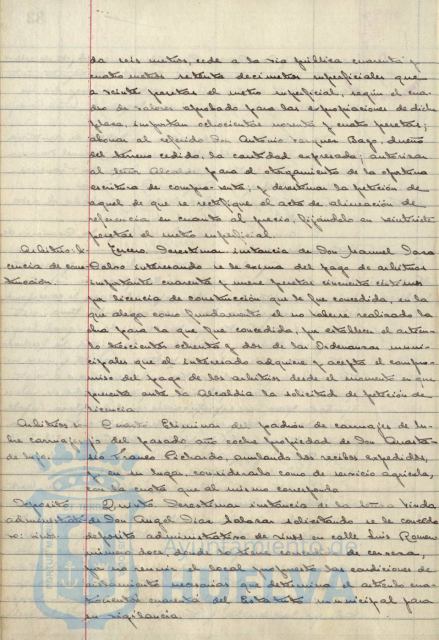 da seis metros, cede a la via pública cuarenta y
cuatro metros setenta decimetros superficiales que
a veinte pesetas el metro superficial, según el cua-
dro de valores aprobado para las expropiaciones de dicha
plaza, importan ochocientas noventa y cuatro pesetas;
abonar al referido Don Antonio Vazquez Bazo, dueño
del terreno cedido, la cantidad expresada; autorizar
al Señor Alcalde para el otorgamiento de la oportuna
escritura de compra-venta; y desestimar la petición de
aquel de que se rectifique el acta de alineación de
referencia en cuanto al precio, fijándolo en veintisiete
pesetas el metro superficial.
Arbitrios: li-
cencia de cons-
trucción.
Tercero. Desestimar instancia de Don Manuel Jara
interesando se le exima del pago de arbitrios
importante cuarenta y nueve pesetas cincuenta céntimos
por licencia de construcción que le fue concedida, en la
que alega como fundamento el no haberse realizado la
obra para la que fue concedida, pues establece el artícu-
lo trescientos ochenta y dos de las Ordenanzas muni-
cipales que el interesado adquiere y acepta el compro-
miso del pago de los arbitrios desde el momento en que
presenta ante la Alcaldía la solicitud de petición de
licencia.
Arbitrios so-
bre carruajes
de lujo.
Cuarto. Eliminar del padrón de carruajes de lu-
jo del pasado año coche propiedad de Don Anasta-
sio Franco Pichardo, anulando los recibos expedidos,
y en su lugar, considerarlo como de servicio agrícola,
con la cuota que al mismo corresponda.
Depósito
administrati-
vo: vinos.
Quinto. Desestimar instancia de la Viuda
de Don Angel Dias Salazar solicitando se le conceda
depósito administrativo de vinos en calle Luis Romero
número doce,
por no reunir el local propuesto las condiciones de
aislamiento necesarias que determina el artículo cua-
trocientos cuarenta del Estatuto municipal para
su vigilancia.
Ayuntamiento de
HUELVA